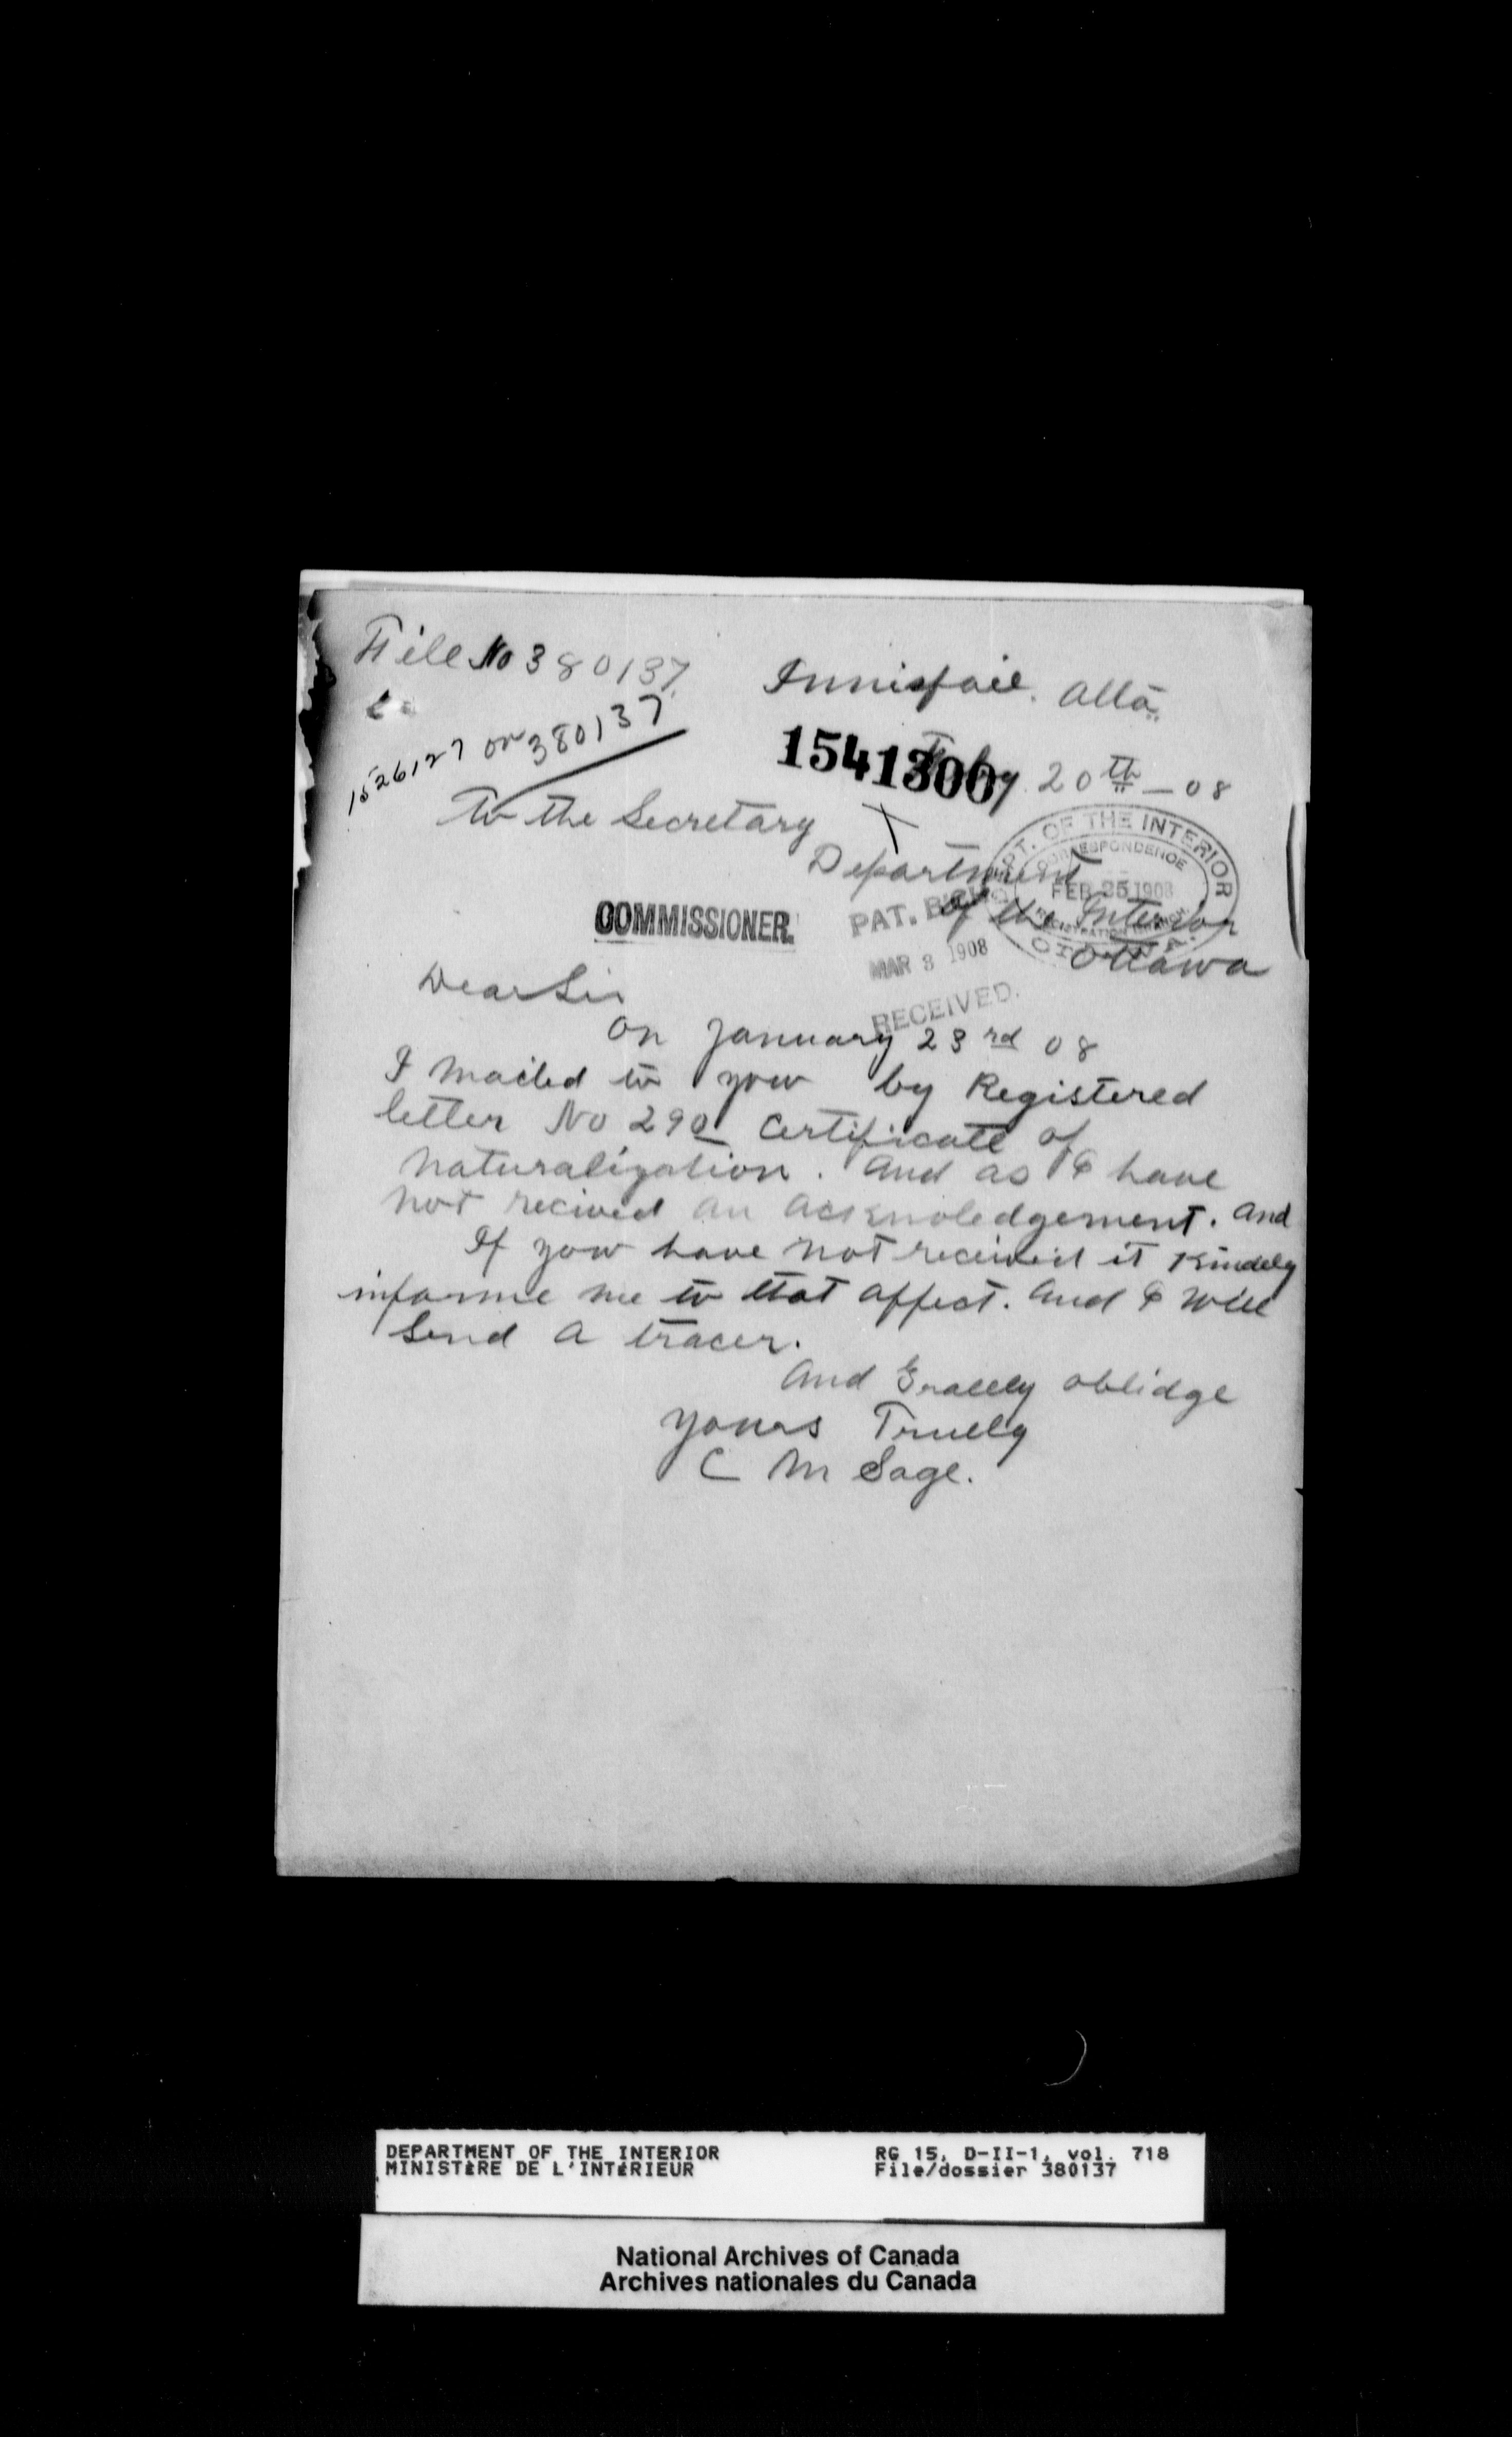 File No 380137
Innisfail. Alta
1526127 on 380137
1541300
Feby 20th — 08
To the Secretary
Department
of the Interior
Ottawa
DEPT. OF THE INTERIOR
CORRESPONDENCE
FEB 25 1908
REGISTRATION
OTTAWA.
COMMISSIONER.
PAT. B'CH
MAR 3 1908
RECEIVED.
Dear Sir
On January 23rd 08
I mailed to you by Registered
letter No 290 Certificate of
naturalization. And as I have
not recived an acknoledgement. And
If you have not received it Kindely
informe me to that affect. And I will
Send a tracer.
And Gratley oblidge
yours Truely
C M Sage.
DEPARTMENT OF THE INTERIOR
MINISTÈRE DE L'INTÉRIEUR
RG 15, D-II-1, vol. 718
File/dossier 380137
National Archives of Canada
Archives nationales du Canada